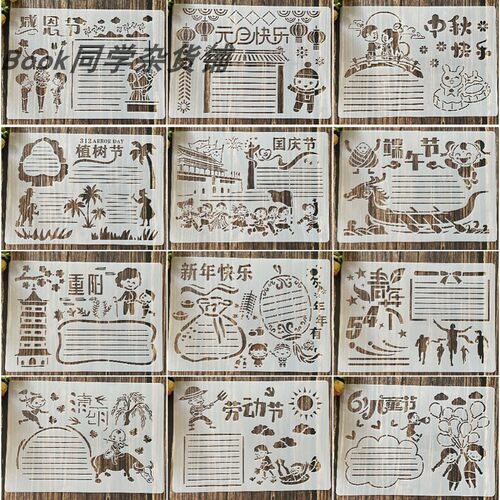 感恩节
Book同学杂货铺
元旦快乐
中秋
快乐
312 ARBOR DAY
植树节
国庆节
端午节
重阳
新年快乐
岁岁年年有
青年
54
清明
劳动节
61儿童节